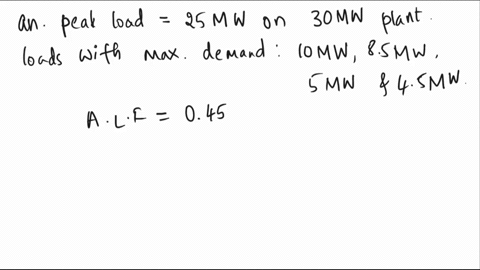 an. peak load = 25 MW on 30 MW plant.
loads with max. demand : 10 MW, 8.5 MW,
5 MW & 4.5 MW.
A.L.F = 0.45